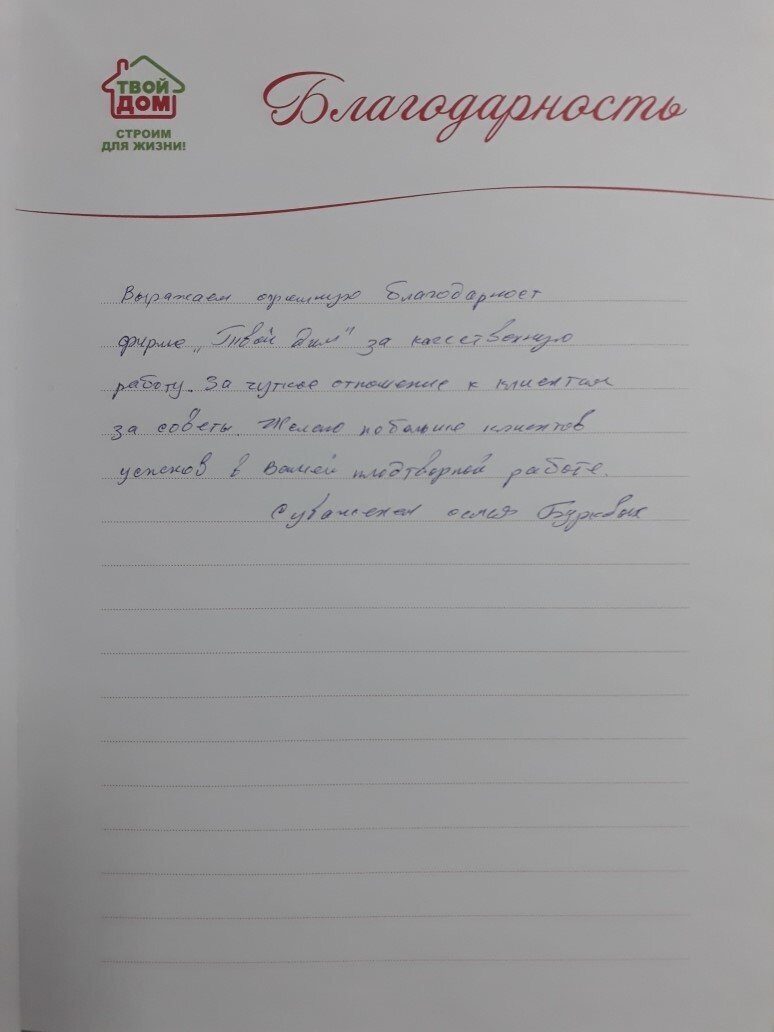 ТВОЙ
ДОМ
СТРОИМ
ДЛЯ ЖИЗНИ!
Благодарность
Выражаем огромную благодарност
фирме „Твой Дом" за качественную
работу. За чуткое отношение к клиентам
за советы. Желаю побольше клиентов
успехов в вашей плодтворной работе.
С уважением семья